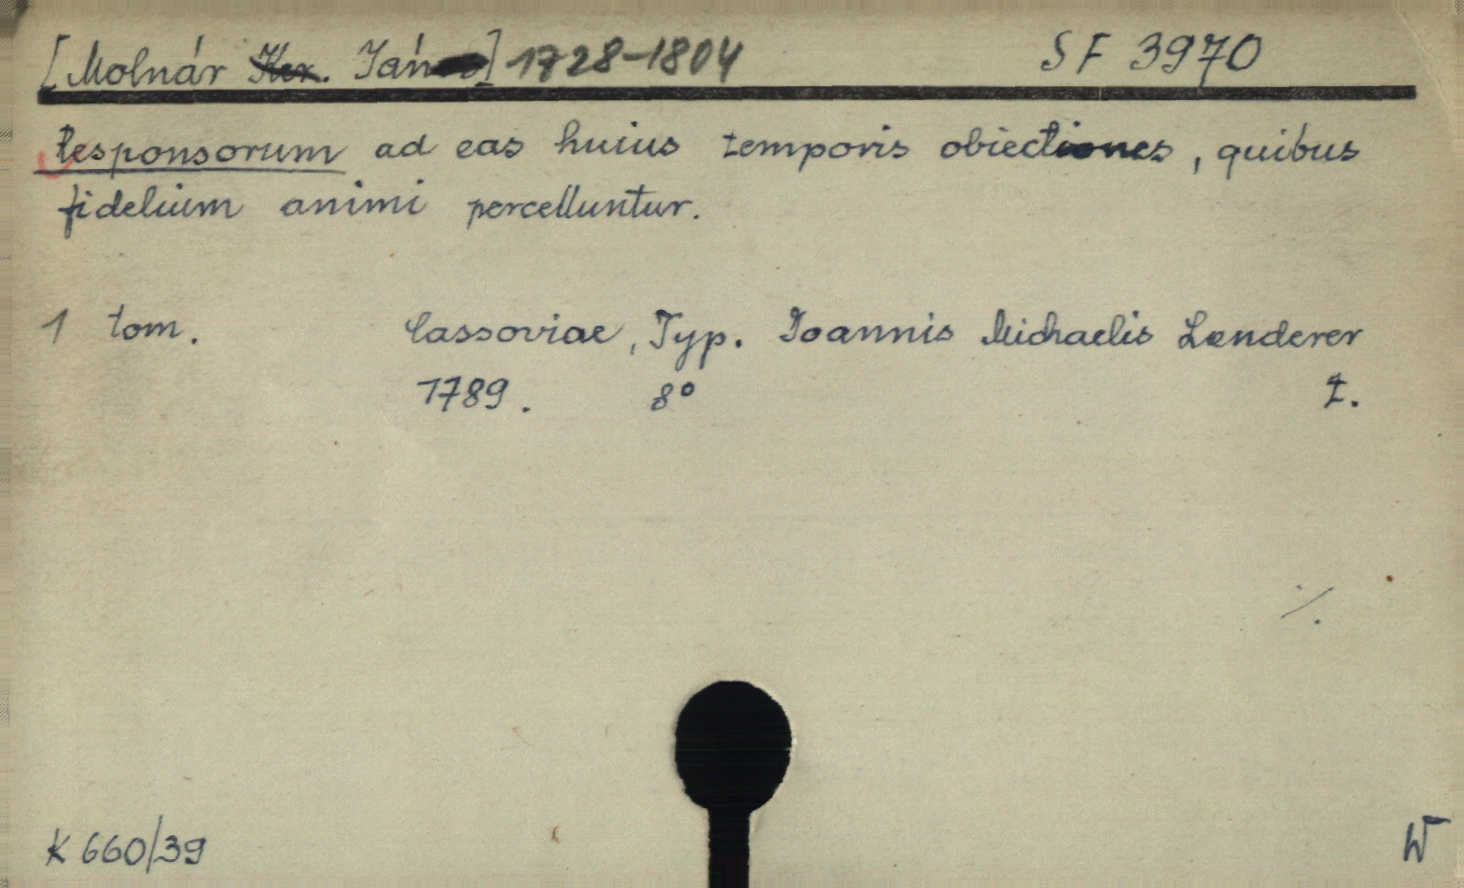 [Molnár Ker. Ján] 1728-1804 SF 3970
Responsorum ad eas huius temporis obiectiones, quibus
fidelium animi percelluntur.
1 tom. Cassoviae, Typ. Ioannis Michaelis Landerer
1789. 8° I.
%.
K 660/39 W